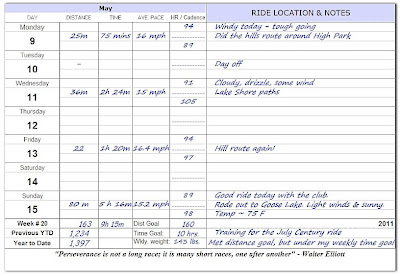 May
DISTANCE TIME AVE. PACE HR / Cadence RIDE LOCATION & NOTES
Monday 94 Windy today - tough going
9 25m 75 mins 16 mph Did the hills route around High Park
89
Tuesday
10 - Day off
Wednesday 91 Cloudy, drizzle, some wind
11 36m 2h 24m 15 mph Lake Shore paths
105
Thursday
12
Friday 94
13 22 1h 20m 16.4 mph Hill route again!
97
Saturday
14
Sunday 89 Good ride today with the club.
15 80 m 5h 16m 15.2 mph Rode out to Goose Lake. Light winds & sunny.
98 Temp ~ 75 F
Week # 20 163 9h 15m Dist Goal 160 2011
Previous YTD 1,234 Time Goal: 10 hrs. Training for the July Century ride
Year to Date 1,397 Wkly. weight: 145 lbs. Met distance goal, but under my weekly time goal
"Perseverance is not a long race; it is many short races, one after another" - Walter Elliott